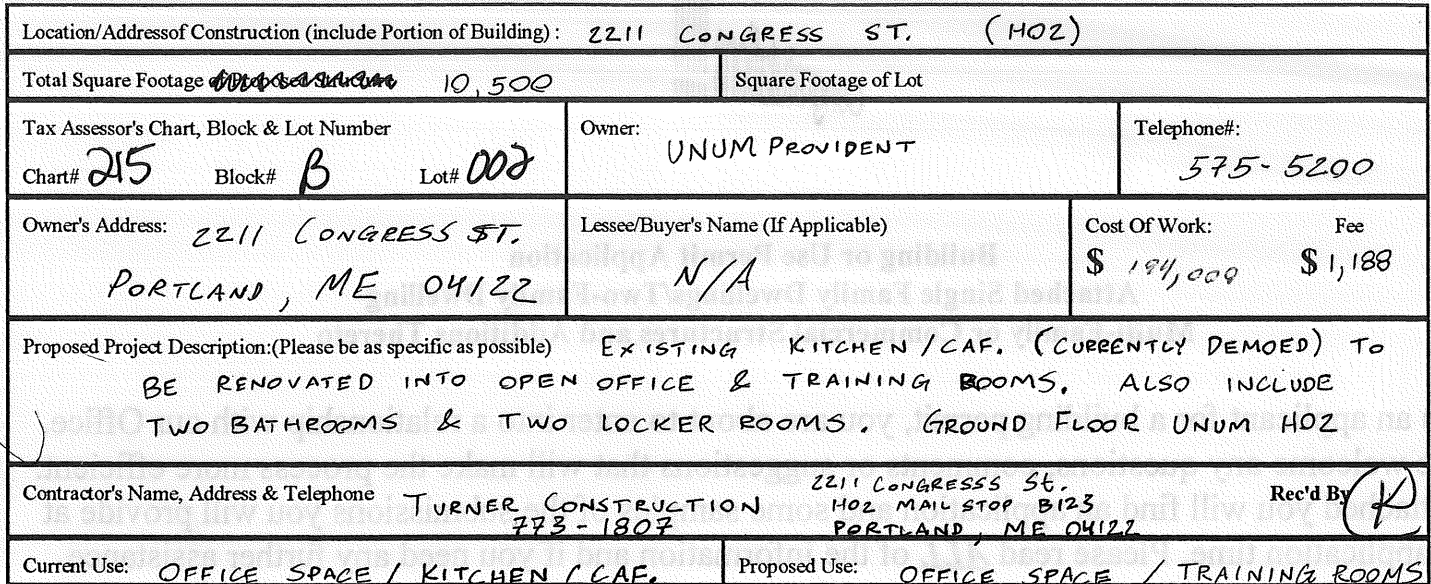 Location/Addressof Construction (include Portion of Building) : 2211 CONGRESS ST. (HO2)
Total Square Footage 10,500 Square Footage of Lot
Tax Assessor's Chart, Block & Lot Number Owner: Telephone#:
UNUM PROVIDENT
Chart# 215 Block# B Lot# 002 575-5200
Owner's Address: 2211 CONGRESS ST. Lessee/Buyer's Name (If Applicable) Cost Of Work: Fee
PORTLAND, ME 04122 N/A $ $ 1,188
Proposed Project Description:(Please be as specific as possible) EXISTING KITCHEN/CAF. (CURRENTLY DEMOED) TO
BE RENOVATED INTO OPEN OFFICE & TRAINING ROOMS. ALSO INCLUDE
TWO BATHROOMS & TWO LOCKER ROOMS. GROUND FLOOR UNUM HO2
Contractor's Name, Address & Telephone TURNER CONSTRUCTION 2211 CONGRESSS St. Rec'd By K
773-1807 HO2 MAIL STOP B123
PORTLAND, ME 04122
Current Use: OFFICE SPACE / KITCHEN / CAF. Proposed Use: OFFICE SPACE / TRAINING ROOMS